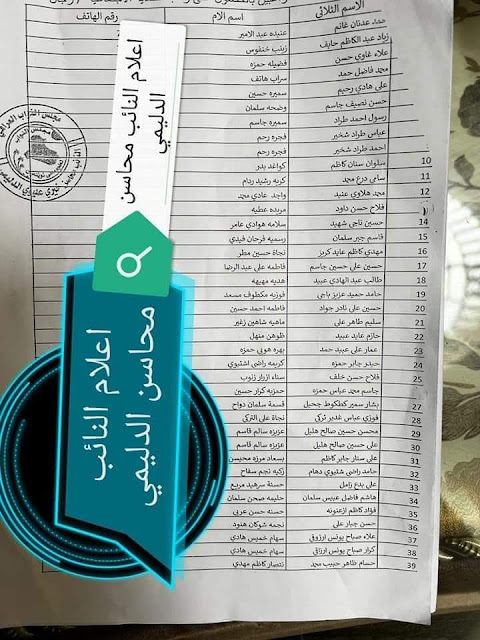 الاسم الثلاثي اسم الام رقم الهاتف
حمد عدنان غانم عنيده عبد الامير
زياد عبد الكاظم حايف زينب خنفوس
علاء غاوي حسن فضيله حمزه
محمد فاضل حمد سراب هاتف
علي هادي رحيم سميره حسين
حسن نصيف جاسم وضحه سلمان
رسول احمد طراد سميره جاسم
عباس طراد شخير فجره رحم
احمد طراد شخير فجره رحم
10 سلوان سنان كاظم كواغد بدر
11 سامي درع محمد كريه رشيد ردام
12 محمد هلاوي عنيد واجد عادي محمد
فلاح حسن داود مريده عطيه
14 حسين ناجي شهيد سلامه هوادي عامر
15 قاسم جبر سلمان رسميه فرحان فيدي
16 مهدي كاظم عايد كريز نجاة حسين مطر
17 حسين علي حسين جاسم فاطمه علي عبد الرضا
18 طالب عبد الهادي عبيد هديه مهيهه
19 حامد حميد عزيز باجي فوزيه مكطوف مسعد
20 حسين علي نادر جواد فاطمه احمد حسين
21 سليم طاهر علي ماهيه شاهين زغير
22 حازم عايد عبيد طوهن منهل
23 عمار علي عبيد حمد بهره هوبي حمزه
24 حيدر جابر حمزه كريمه راضي اشتيوي
25 فلاح حسن خلف سناء ازيار زنوب
جاسم محمد عباس حمزه حمزيه كرار حسين
27 بشار سمير كطكوط جحيل قسمة سلمان دواح
28 فوزي عباس غدير تركي نجاة علي التركي
29 محسن حسين صالح هليل عزيزه سالم قاسم
30 علي حسين صالح هليل عزيزه سالم قاسم
31 علي ستار جابر كاظم بسعاد مرزه محيسن
32 حامد راضي شتيوي دهام زكيه نجم سفاح
33 علي بدع زامل حسنة سرهيد مربع
34 هاشم فاضل عبيس سلمان حليمه صحن سلمان
35 فؤاد كاظم ازغنونه حسنه حسن عربي
36 حسن جبار علي نجمه شوكان هنود
37 علاء صباح يونس ارزوقي سهام خميس هادي
38 كرار صباح يونس ارزاقي سهام خميس هادي
39 حسام ظاهر حبيب محمد نتصار كاظم مهدي
اعلام النائب محاسن
الدليمي
اعلام النائب
محاسن الدليمي